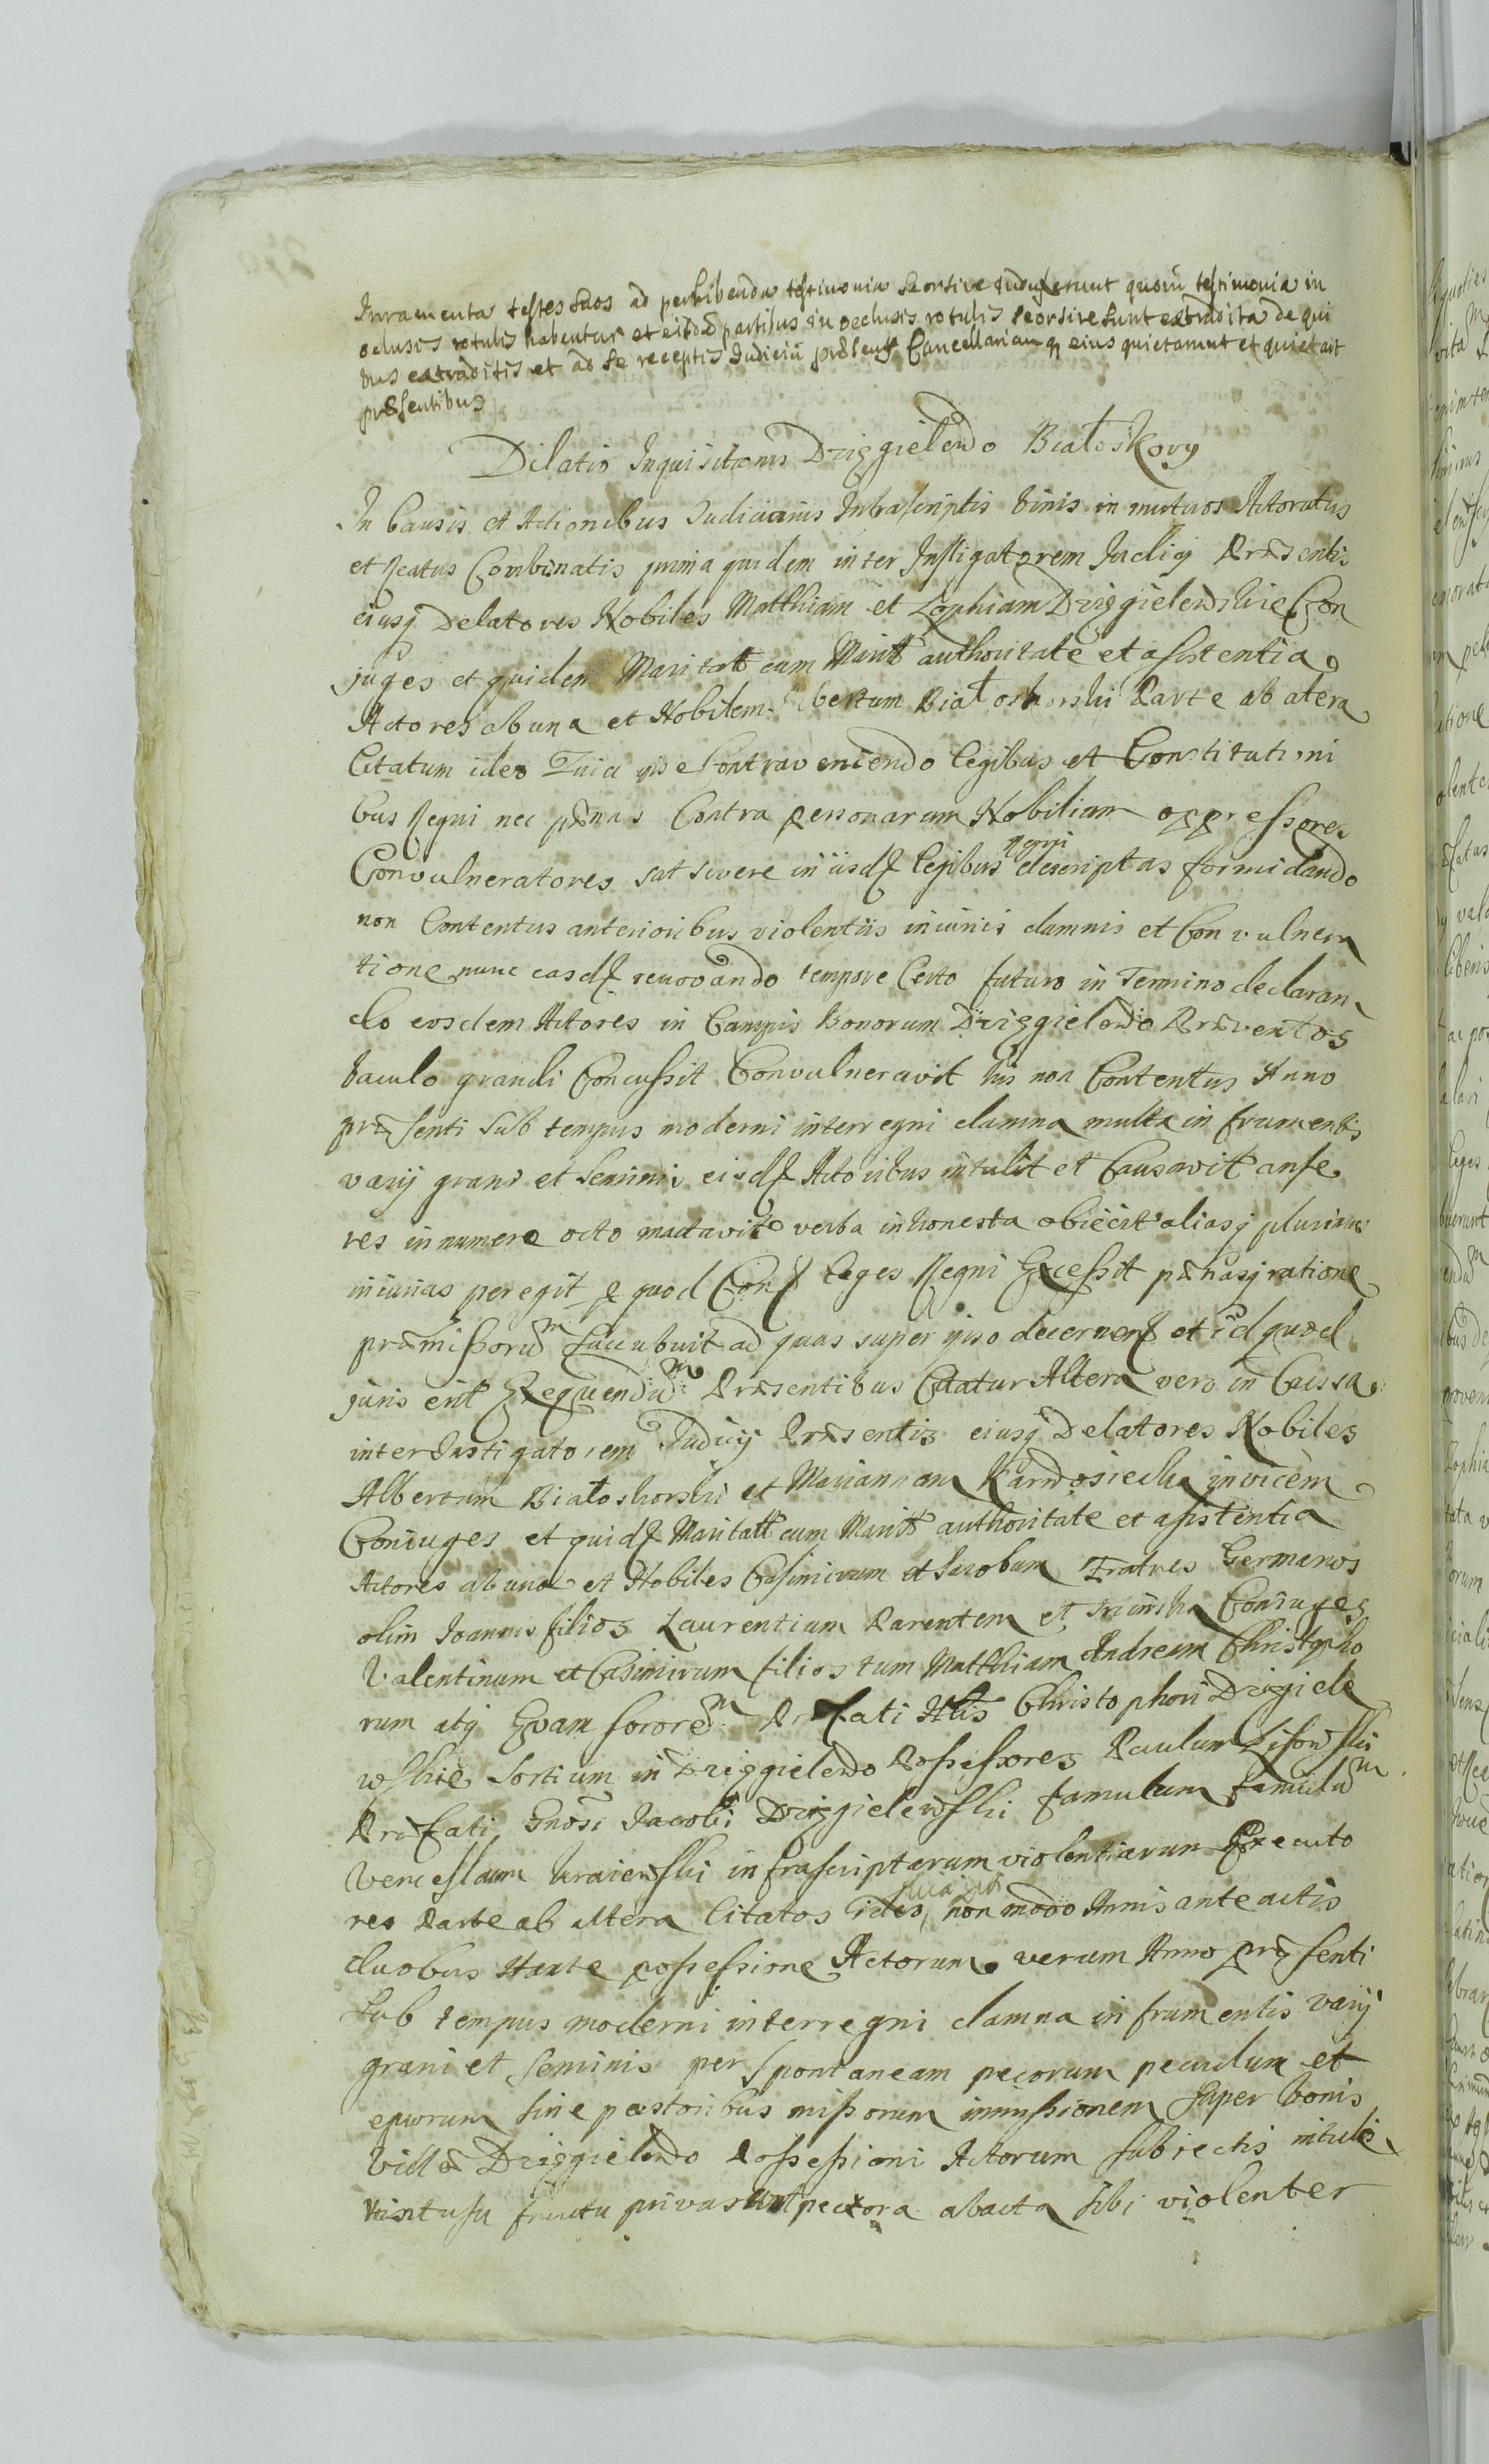 Iuramenta testes suos ad perhibenda testimonia seorsive induxerunt quorū testimonia in
oclusis rotulis habentur et eisdē partibus in oclusis rotulis seorsive sunt extradita de qui
bus extraditis et ad se receptis Judiciū præsens Cancellariamq eius quietarunt et quietant
præsentibus
Dilatio Inquisitionis Drięgielewo Białoskory
In Causis et Actionibus Judiciariis Infrascriptis binis in mutuos Actoratus
et Reatus Combinatis prima quidem inter Instigatorem Judicij Præsentis
eiusq Delatores Nobiles Matthiam et Zophiam Drięgielewskie Con
juges et quidem Maritatā cum Marit authoritate et assistentia
Actores ab una et Nobilem Albertum Białoskorski Parte ab altera
Citatum ideo Quia ipse Contraveniendo legibus et Constitutioni
bus Regni nec pœnas Contra personarum Nobilium oppressores
Convulneratores sat severe in iisd legibus Regni descriptas formidando
non Contentus anterioribus violentiis iniuriis damnis et Convulnera
tione nunc easd renovando tempore Certo futuro in Termino declaran
do eosdem Actores in Campis Bonorum Drięgielewo Præventos
baculo grandi Concussit Convulneravit his non Contentus Anno
præsenti sub tempus moderni interregni damna multa in frumentis
varij grani et seminis eisd Actoribus intulit et Causavit anse
res in numero octo mactavit verba inhonesta obiecit aliasq plurimas
iniurias peregit p quod Con leges Regni Excessit pœnasq ratione
præmissorūm succubuit ad quas super ipso decernen et id quod
juris erit Exequendūm Præsentibus Citatur Altera vero in Caussa
inter Instigatorem Judicij Præsentis eiusq Delatores Nobiles
Albertum Białoskorski et Mariannam Karwosiecka invicem
Coniuges et quid Maritatā cum Marit authoritate et assistentia
Actores ab una et Nobiles Casimirum et Jacobum Fratres Germanos
olim Joannis filios Laurentium Parentem et Coniuges
Valentinum et Casimirum filios tum Matthiam Andream Christopho
rum atq Evam sororēm Præfati Christophori Drięgiele
wskie sortium in Drięgielewo Possessores Paulum Lisowski
Præfati Gnosi Jacobi Drięgielewski famulum famulūm
Venceslaum Kraiewski infrascriptarum violentiarum Executo
res Parte ab altera Citatos ideo quia non modo Annis ante actis
duobus stante possessione Actorum verum Anno præsenti
sub tempus moderni interregni damna in frumentis varij
grani et seminis per spontaneam pecorum pecudum et
equorum sine pastoribus missorum immissionem super bonis
Villæ Drięgielewo Possessioni Actorum subiectis intule
runt usu fructu privarunt pectora abacta sibi violenter